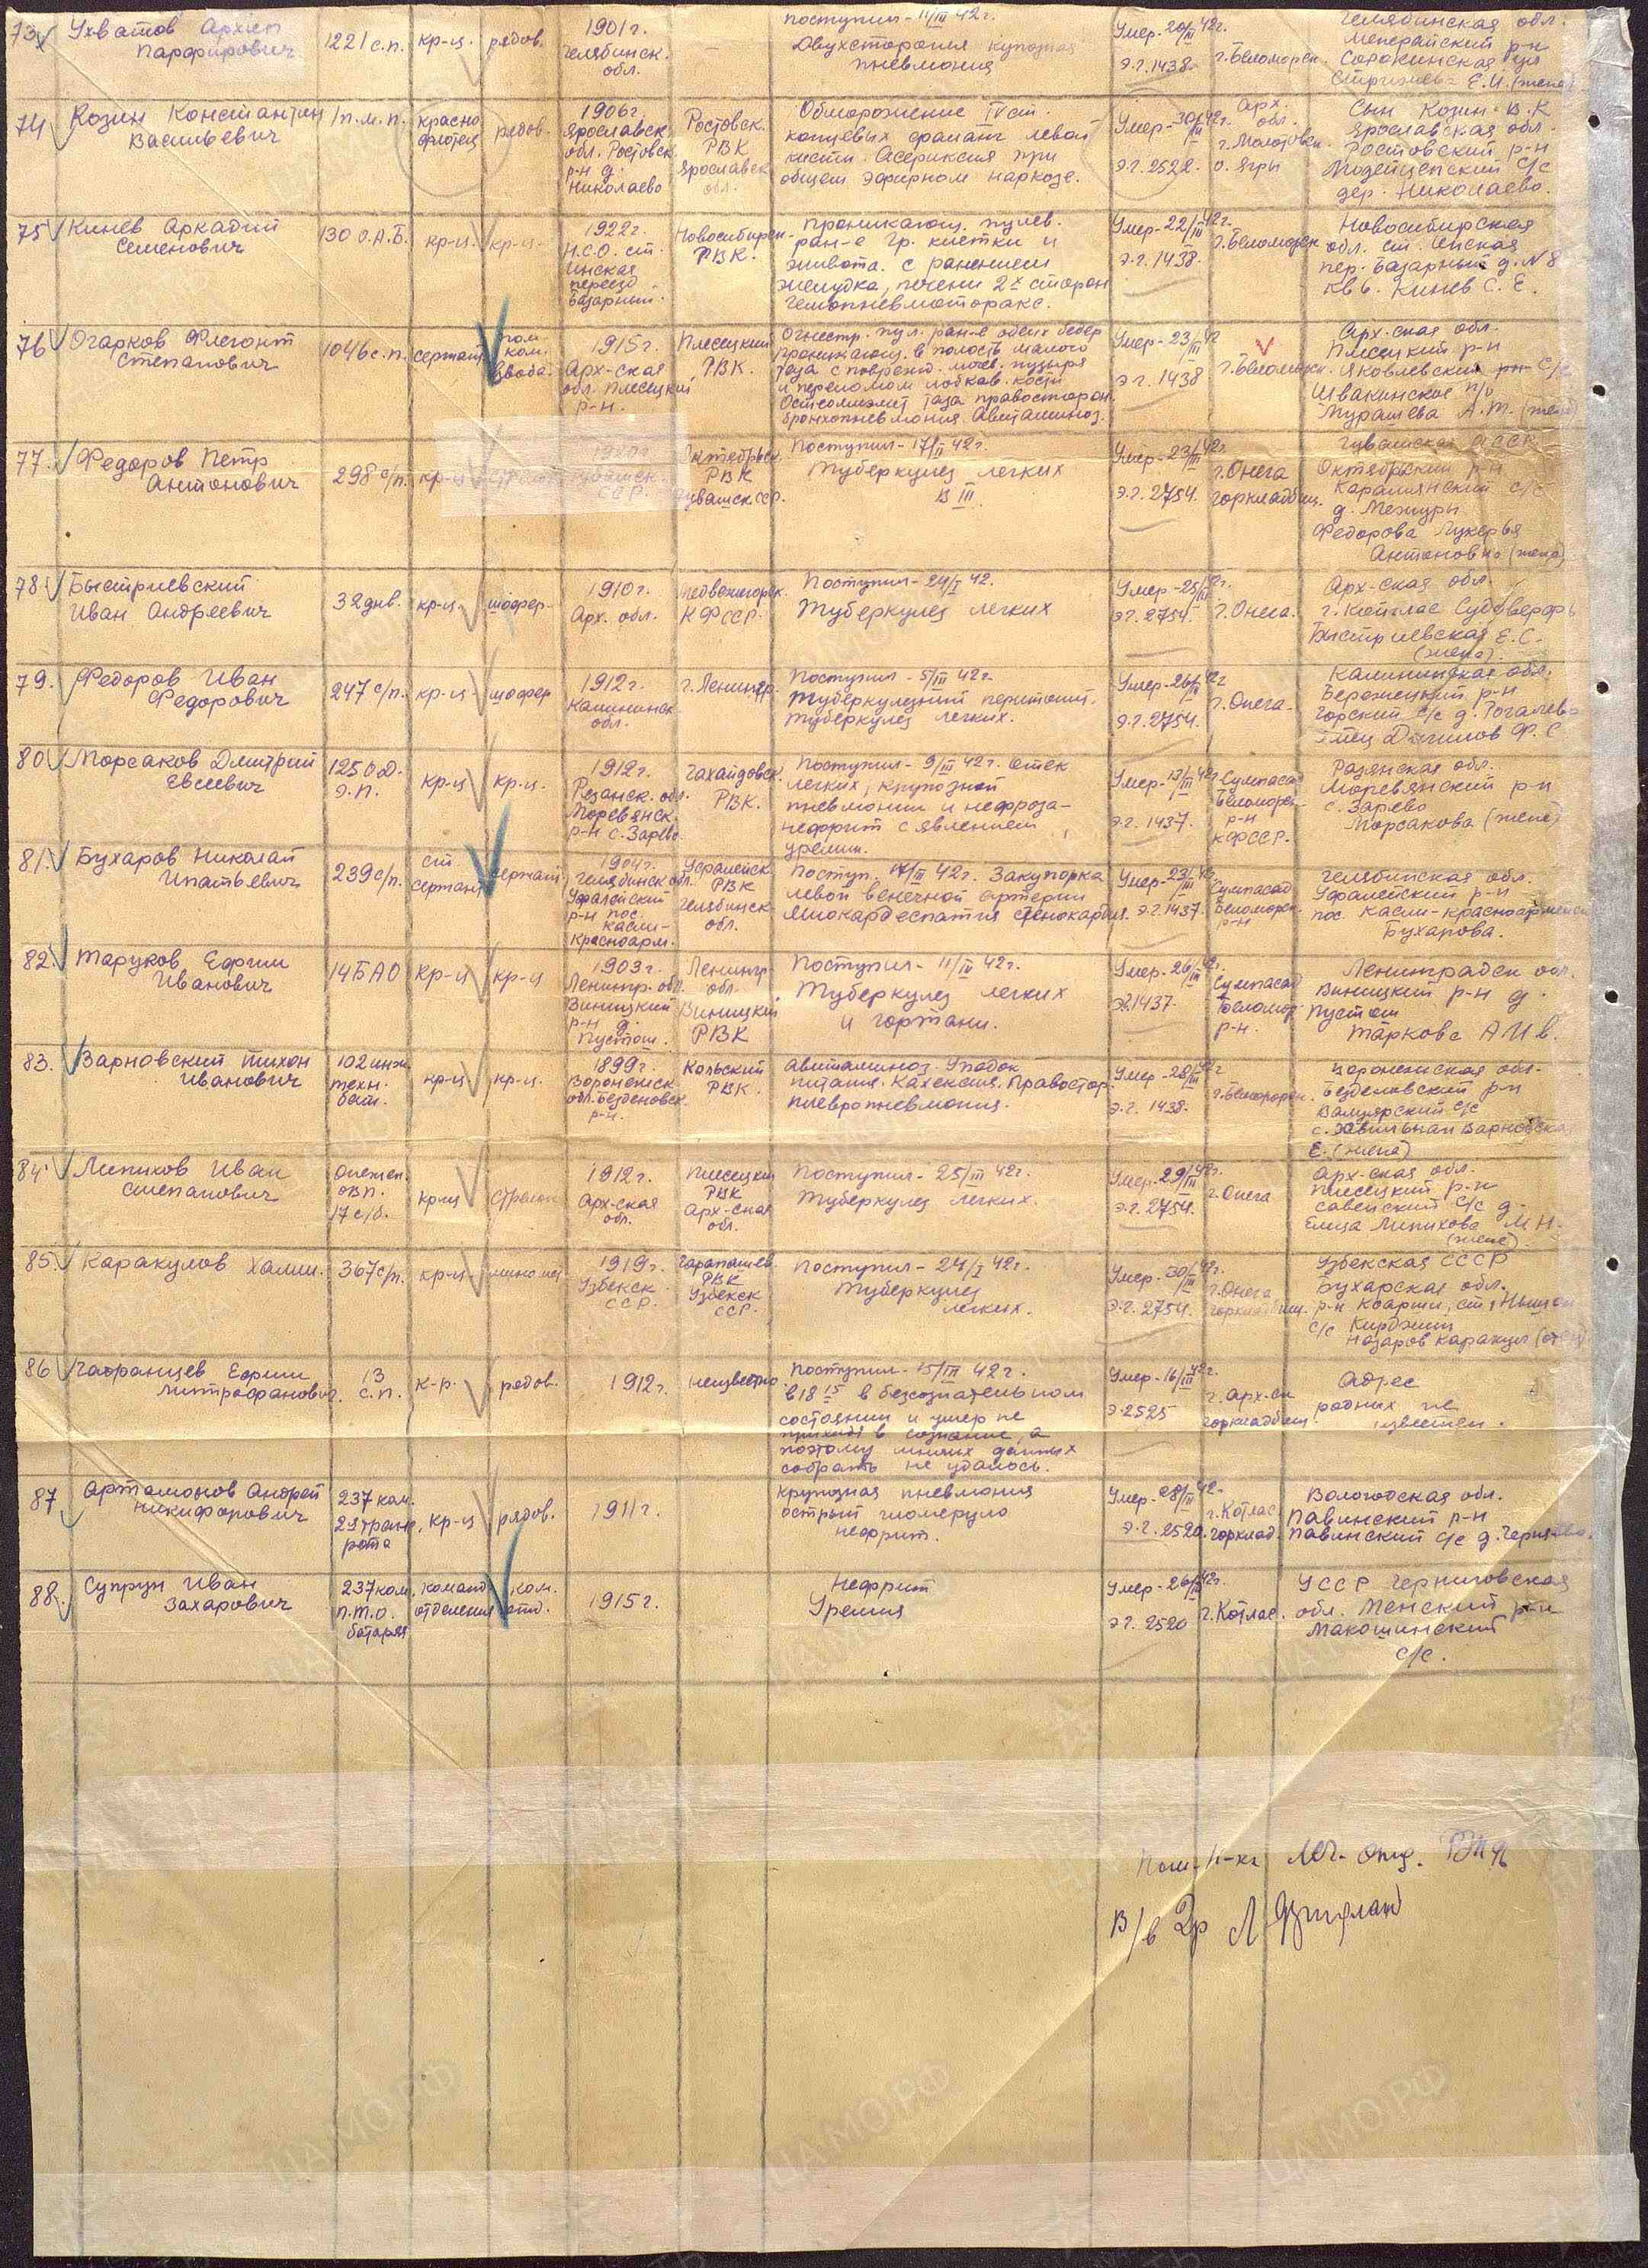 73. Ухватов Архип Парфирович
1221 с.п.
кр-ц.
рядов.
1901 г. Челябинск. обл.
поступил - 11/III 42 г.
Двухстороняя
пневмония
Умер - 20/III 42 г.
э.г. 1438.
г. Беломорск.
Челябинская обл.
р-н
Е.И. (жена)
74 Козин Константин Васильевич
1 п.м.п.
красно флотец
рядов.
1906 г. Ярославск. обл. Ростовск. р-н д. Николаево
Ростовск. РВК Ярославск. обл.
Обморожение IV ст.
концевых фаланг левой
кисти. Асфиксия при
общем эфирном наркозе.
Умер - 30/III 42 г.
э.г. 2522.
Арх. обл. г. Молотовск. о. Ягры
Сын Козин В.К
Ярославская обл.
Ростовский р-н
с/с
дер. Николаево.
75 Кинев Аркадий Семенович
130 О.А.Б.
кр-ц.
кр-ц.
1922 г. Н.С.О. ст. Инская переезд Базарный.
Новосибирск. РВК.
Проникающ. пулев.
ран-е гр. клетки и
живота. с ранением
желудка, печени 2х сторон
гемопневмоторакс.
Умер - 22/III 42 г.
э.г. 1438.
г. Беломорск
Новосибирская
обл. ст. Инская
пер. Базарный д. N 8
кв 6. Кинев С. Е.
76 Огарков Флегонт Степанович
1046 с.п.
сержант
пом. ком. взвода.
1915 г. Арх-ская обл. Плесецкий р-н.
Плесецкий РВК.
Огнестр. пул. ран-е обеих бедер
проникающ. в полость малого
таза с поврежд. моч. пузыря
и переломом лобков. кости
Остеомиэлит таза правосторон.
бронхопневмония Авитаминоз.
Умер - 23/III 42
э.г. 1438
г. Беломорск.
Арх-ская обл.
Плесецкий р-н
Яковлевский с/с
Шваkинское п/о
Мурашева А.М. (жена)
77. Федоров Петр Антонович
298 с/п.
кр-ц
ССР.
Октябрьск. РВК Чувашск ССР.
Поступил - 17/II 42 г.
Туберкулез легких
В III
Умер - 23/III 42 г.
э.г. 2754.
г. Онега горкладбищ.
Чувашская АССР
Октябрьский р-н
с/с
Федорова Лукерья
Антоновна (жена)
78. Быстриевский Иван Андреевич
32 днв.
кр-ц.
шофер.
1910 г. Арх. обл.
Медвежегорск. КФССР.
Поступил - 24/I 42.
Туберкулез легких
Умер - 25/III 42 г.
э.г. 2754.
г. Онега.
Арх-ская обл.
г. Котлас Судоверфь
Быстриевская Е.С.
(жена).
79. Федоров Иван Федорович
247 с/п.
кр-ц.
шофер
1912 г. Калининск. обл.
г. Ленингр.
Поступил - 5/III 42 г.
Туберкулезний перитонит.
Туберкулез легких.
Умер - 26/III 42 г
э.г. 2754.
г. Онега.
Калининская обл.
р-н
Горский с/с д. Рогалево
отец Данилов Ф. С
80 Морсаков Дмитрий Евсеевич
125 О.Д. э.п.
кр-ц
кр-ц.
1912 г. Рязанск. обл. р-н с. Зарево
РВК.
Поступил - 9/III 42 г. Отек
легких, крупозной
пневмонии и нефроза-
нефрит с явлением
уремии.
Умер - 13/III 42 г
э.г. 1437.
Сумпасад Беломорск. р-н КФССР.
Рязанская обл.
р-н
с. Зарево
Морсакова (жена)
81. Бухаров Николай Ипатьевич
239 с/п.
ст. сержант
сержант
1904 г. Челябинск обл. Уфалейский р-н пос. Касли-Красноарм.
Уфалейск. РВК Челябинск. обл.
Поступ. 14/III 42 г. Закупорка
левой венечной артерии
Миокардеспатия стенокардия.
Умер - 23/III 42
э.г. 1437.
Сумпасад Беломорск. р-н
Челябинская обл.
Уфалейский р-н
пос. Касли-Красноармейск
Бухарова.
82. Таруков Ефим Иванович
14 БАО
кр-ц
кр-ц
1903 г. Ленингр. обл. Виницкий р-н д. Пустош.
Ленингр. обл. Виницкий РВК
Поступил - 11/IV 42 г.
Туберкулез легких
и гортани.
Умер - 26/III 42 г.
э.г. 1437.
Сумпасад Беломор. р-н.
Ленинградск обл.
Виницкий р-н д.
Пустош
Таркова А И в.
83. Варновский Тихон Иванович
102 инж. техн. бат.
кр-ц
кр-ц.
1899 г. Воронежск. р-н.
Кольский РВК.
Авитаминоз. Упадок
питания. Кахексия. Правостор.
плевропневмония.
Умер - 28/III 42 г
э.г. 1438.
г. Беломорск.
Воронежская обл.
р-н
с/с
Е. (жена)
84 Липихов Иван Степанович
Онежск. ОВП. 17 с/б.
кр-ц
стрелок
1912 г. Арх-ская обл.
Плесецкий РВК Арх-ская обл.
Поступил - 25/III 42 г.
Туберкулез легких.
Умер - 29/III 42 г.
э.г. 2754.
г. Онега
Арх-ская обл.
Плесецкий р-н
Савенский с/с д.
Емца Липихова М Н.
(жена).
85. Каракулов Халим.
367 с/п.
кр-ц.
миномет.
1919 г. Узбекск. ССР.
РВК Узбекск ССР.
Поступил - 24/I 42 г.
Туберкулез
легких.
Умер - 30/III 42 г.
э.г. 2754.
г. Онега горкладбищ.
Узбекская СССР
Бухарская обл.
с/с
Назаров Каракул (отец)
86 Чафранцев Ефим Митрофанович.
13 с.п.
к-р.
рядов.
1912 г.
неизвестно
Поступил - 15/III 42 г.
в 18 15 в безсознательном
состоянии и умер не
приходя в сознание, а
поэтому многих данных
собрать не удалось.
Умер - 16/III 42 г.
э. 2525
г. Арх-ск горкладбищ.
Адрес
родных не
известен.
87 Артамонов Андрей Никифорович
237 кам. рота
кр-ц
рядов.
1911 г.
Крупозная пневмония
острый гломеруло
нефрит.
Умер - 28/III 42
э.г. 2520.
г. Котлас горклад.
Вологодская обл.
Павинский р-н
Павинский с/с д.
88. Супрун Иван Захарович
237 кам. п.т.о. батарея
команд отделения
ком. отд.
1915 г.
Нефрит
Уремия
Умер - 26/III 42 г.
э.г. 2520
г. Котлас.
УССР Черниговская
обл. Менский р-н
Макошинский
с/с.
Пом. Н-ка
В/в Др
ЦАМО.РФ
ЦАМО.РФ
ЦАМО.РФ